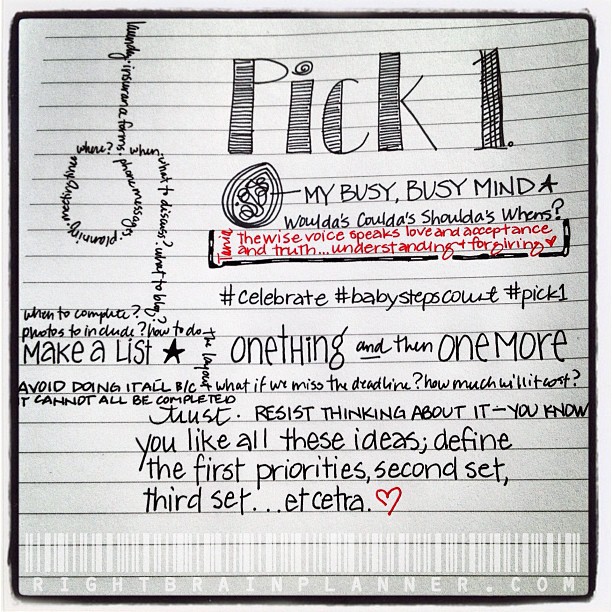 Pick 1.
laundry. insurance forms. phone messages
where? when. what to discuss? what to blog?
planning
MY BUSY, BUSY MIND ★
Woulda's Coulda's Shoulda's Whens?
The wise voice speaks love and acceptance
and truth... understanding + forgiving ♥
#celebrate #babystepscount #pick1
when to complete?
photos to include? how to do
the layout
Make a List ★ onething and then one more
AVOID DOING IT ALL B/C + what if we miss the deadline? how much will it cost?
IT CANNOT ALL BE COMPLETED
trust. RESIST THINKING ABOUT IT—YOU KNOW
you like all these ideas; define
the first priorities, second set,
third set... etcetra. ♡
RIGHTBRAINPLANNER.COM